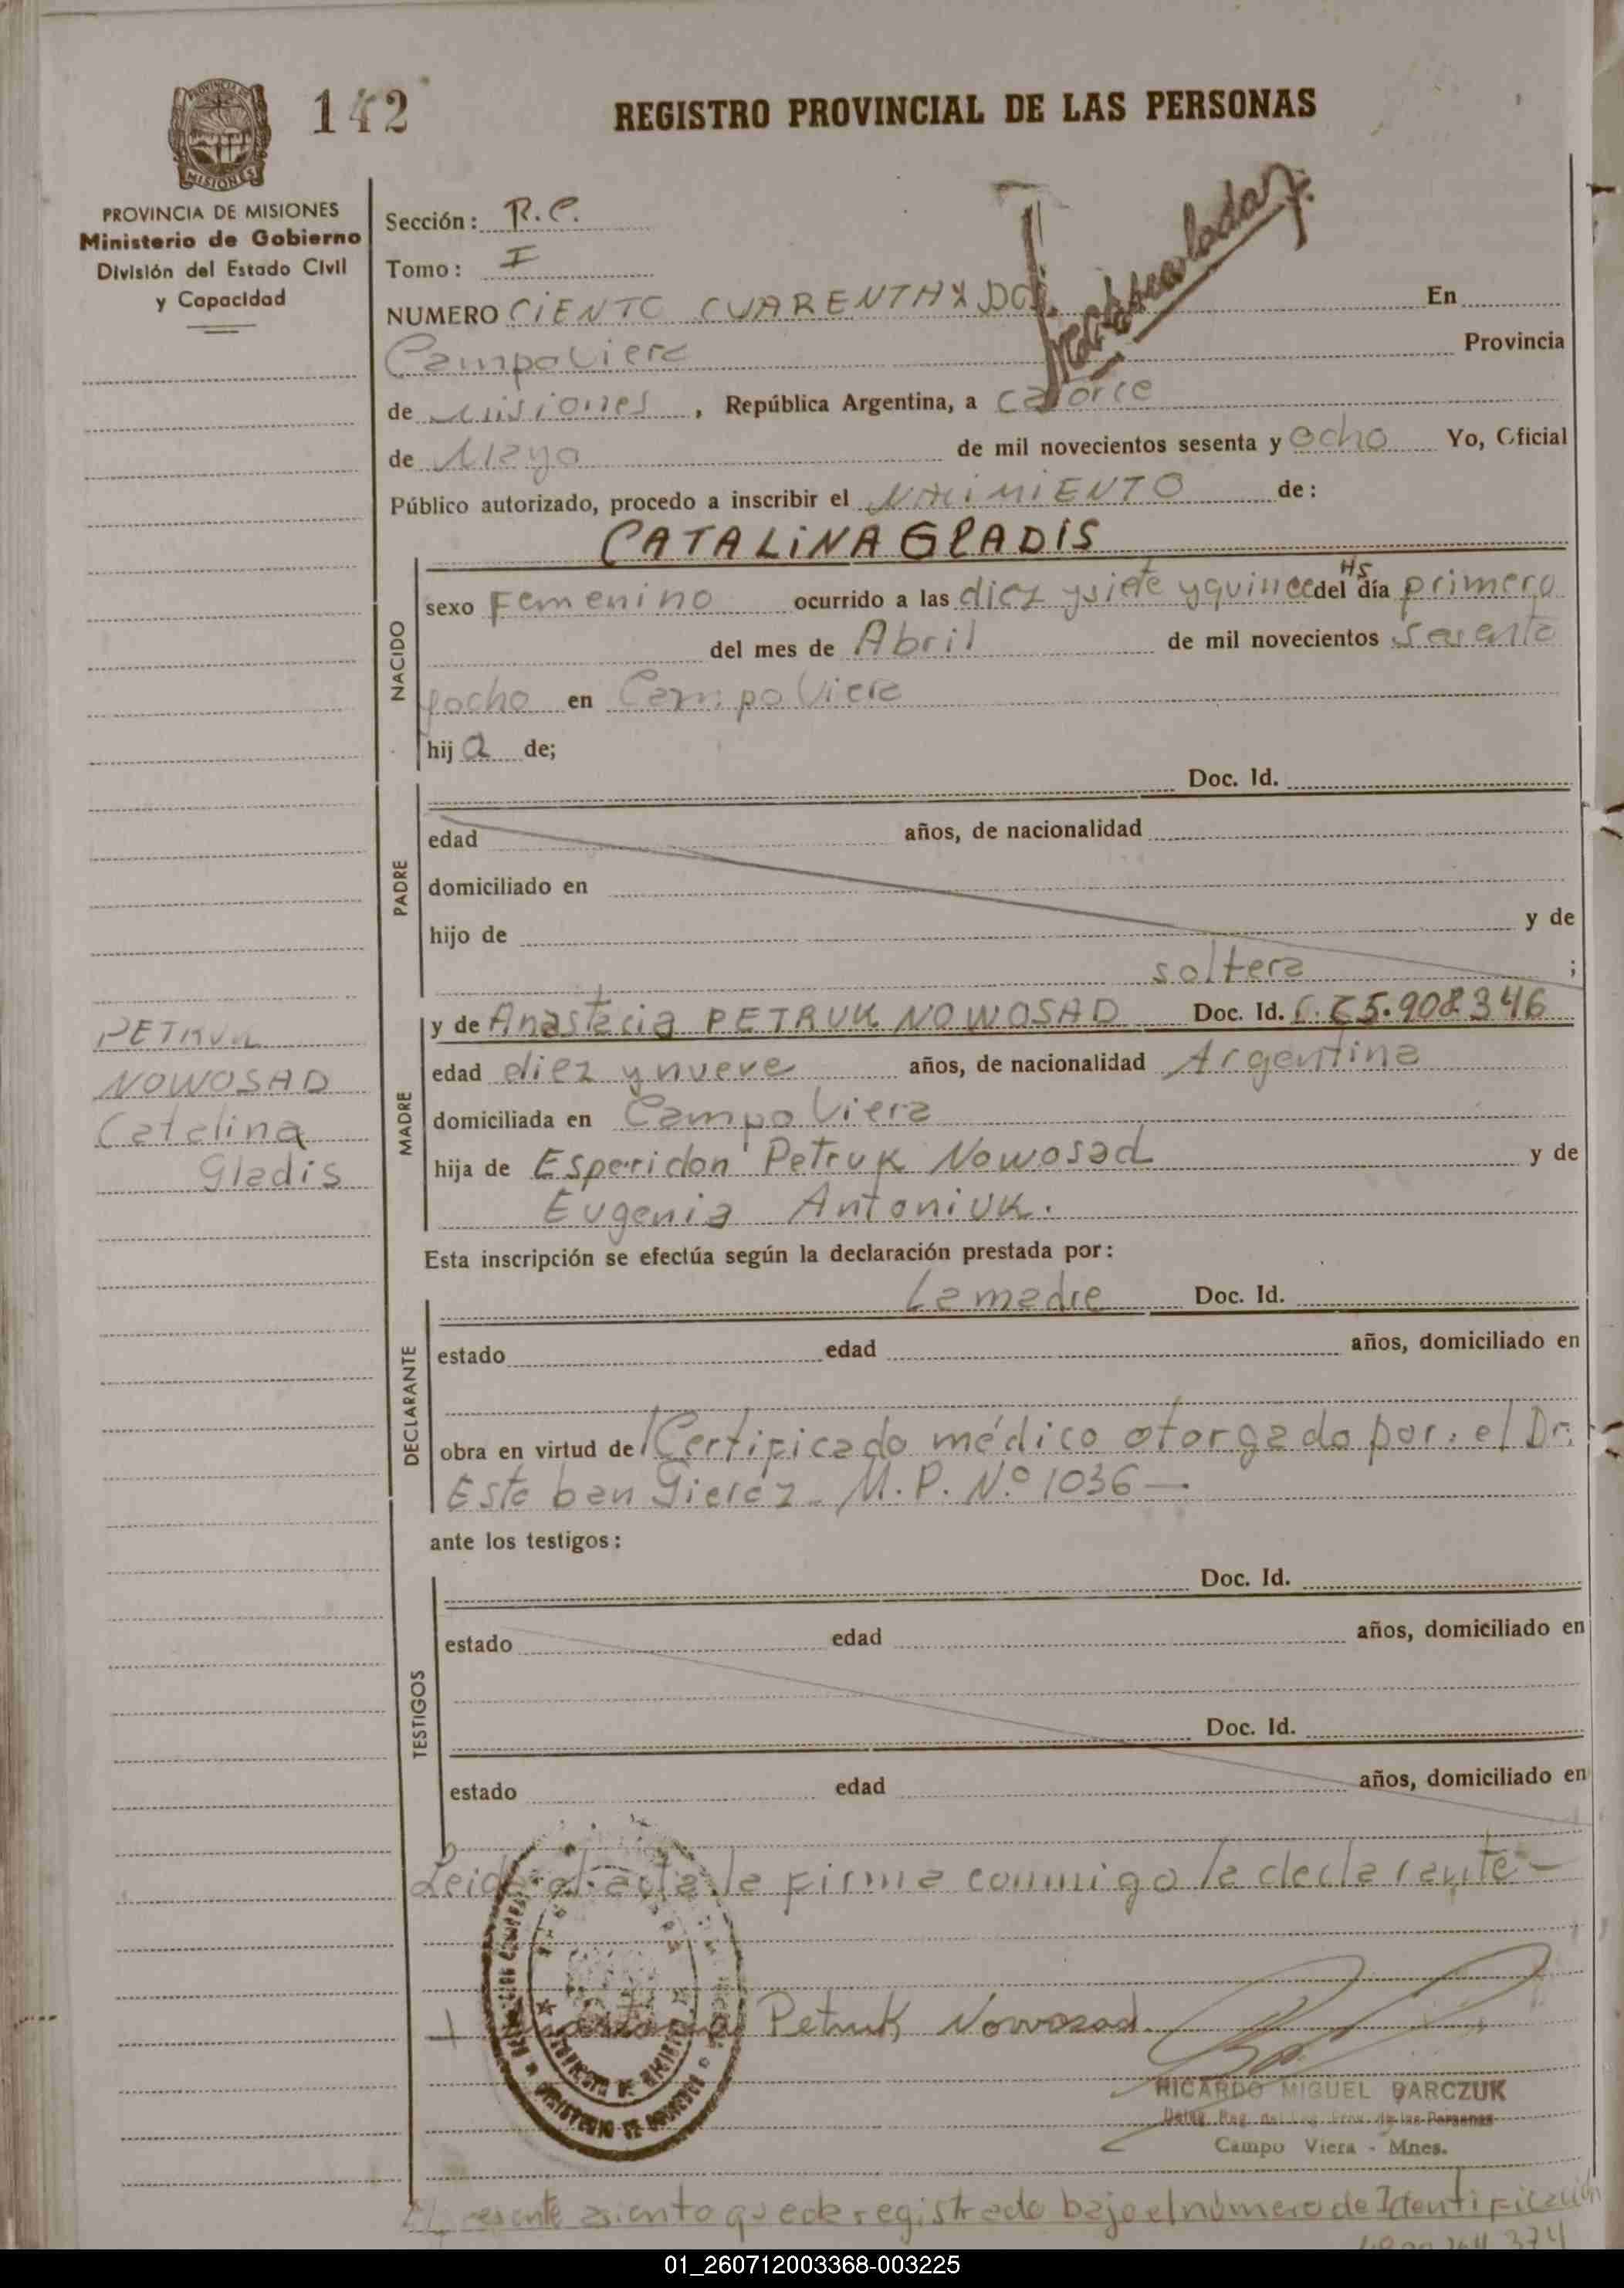 142
REGISTRO PROVINCIAL DE LAS PERSONAS
MISIONES
PROVINCIA DE MISIONES
Ministerio de Gobierno
División del Estado Civil
y Capacidad
Sección: R.C.
Tomo: I
NUMERO CIENTO CUARENTA Y DOS En
Campo Viera Provincia
de Misiones, República Argentina, a catorce
de Mayo de mil novecientos sesenta y ocho Yo, Oficial
Público autorizado, procedo a inscribir el NACIMIENTO de:
CATALINA GLADIS
NACIDO
Hs
sexo Femenino ocurrido a las diez y siete y quince del día primero
del mes de Abril de mil novecientos sesenta
y ocho en Campo Viera
hija de;
PADRE
Doc. Id.
edad años, de nacionalidad
domiciliado en
hijo de y de
soltera ;
PETRUK
NOWOSAD
Catalina
Gladis
MADRE
y de Anastacia PETRUK NOWOSAD Doc. Id. 5.908346
edad diez y nueve años, de nacionalidad Argentina
domiciliada en Campo Viera
hija de Esperidon Petruk Nowosad y de
Eugenia Antoniuk.
Esta inscripción se efectúa según la declaración prestada por:
DECLARANTE
La madre Doc. Id.
estado edad años, domiciliado en
obra en virtud de Certificado médico otorgado por: el Dr.
Esteban M.P. Nº 1036 —
ante los testigos:
TESTIGOS
Doc. Id.
estado edad años, domiciliado en
Doc. Id.
estado edad años, domiciliado en
Leida el acta la firma conmigo la declarante —
Petruk Nowosad
RICARDO MIGUEL BARCZUK
Deleg. Reg. del Reg. Prov. de las Personas
Campo Viera - Mnes.
El presente asiento queda registrado bajo el número de Identificación
01_260712003368-003225